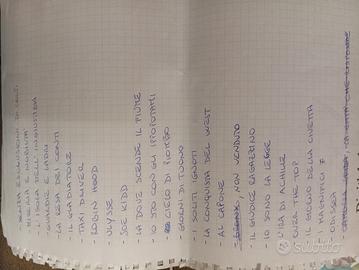 - L'ISOLA DELL'INGIUSTIZIA
- GUARDIE E LADRI
- LA RESA DEI CONTI
- IL GLADIATORE
- TAXI DRIVER
- ROBIN HOOD
- ULYSSE
- JOE KIDD
- LA DOVE SCENDE IL FIUME
- IO STO CON GLI IPPOPOTAMI
- CIELO DI PIOMBO
- GIORNI DI TUONO
- I SOLITI IGNOTI
- LA CONQUISTA DEL WEST
- AL CAPONE
NON VENDUTO
- IL GIUDICE RAGAZZINO
- IO SONO LA LEGGE
- L'IRA DI ACHILLE
- OVER THE TOP
- IL GIORNO DELLA CIVETTA
- I MAGNIFICI 7
- ODISSEA